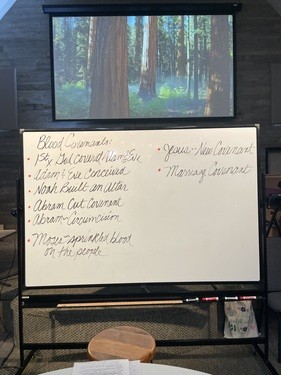 Blood Covenants:
• 1st God Covered Adam & Eve
• Adam & Eve Conceived
• Noah Built an Altar
• Abram Cut Covenant
• Abram - Circumcision
• Moses - sprinkled blood
on the people
• Jesus - New Covenant
• Marriage Covenant